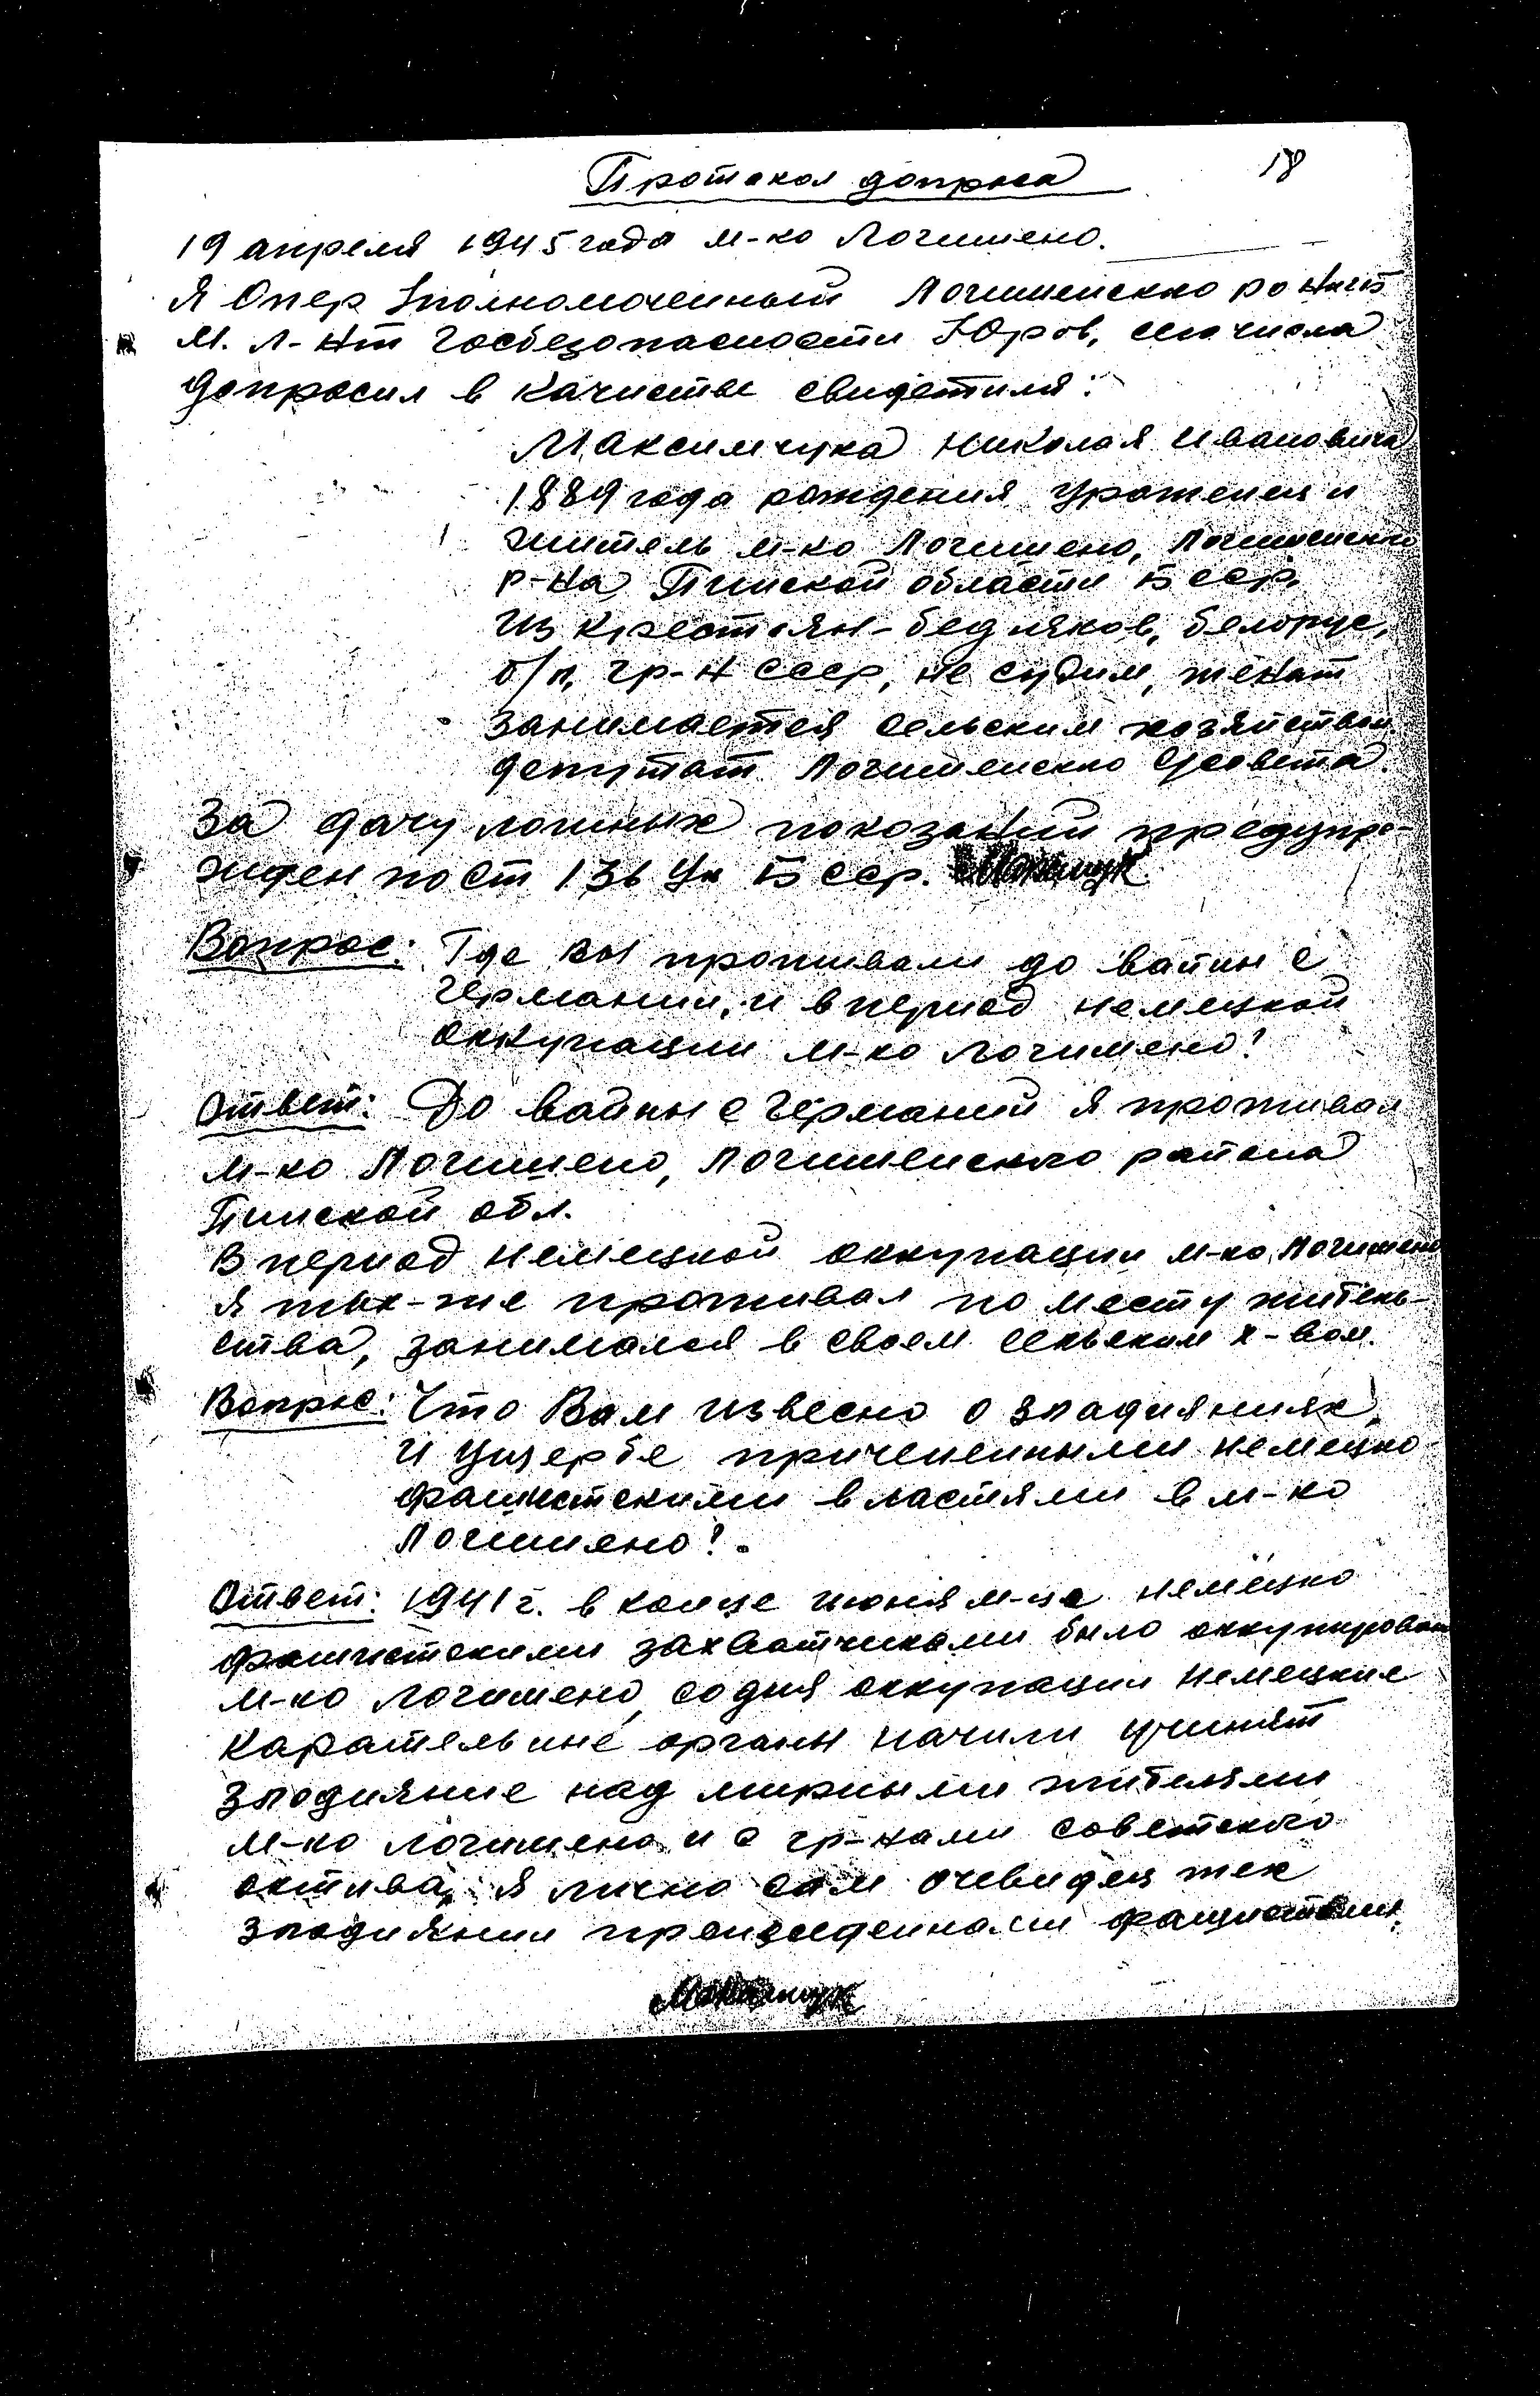 18
Протокол допроса
19 апреля 1945 года м-ко Логишено.
Я Опер Уполномоченный Логишенско РО НКГБ
М. Л-Нт Госбезопасности Юров, сего числа
допросил в качистве свидетиля:
Максимчука Николая Ивановича
1889 года рождения уроженец и
житель м-ко Логишено, Логишенско
р-на Пинской области БССР.
из крестьян-бедняков, белорус,
б/п, гр-н СССР, не судим, женат
занимается сельским хозяйством.
депутат Логишенско С/совета.
За дачу ложных показаний предупре-
жден по ст 136 Ук БССР.
Вопрос: Где вы проживали до вайны с
Германии, и в период немецкой
оккупации м-ко Логишено?
Ответ: До вайны с Германий я проживал
м-ко Логишено, Логишенского района
Пинской обл.
В период немецкой оккупации м-ко Логишено
я так-же проживал по месту житель-
ства, занимался в своем сельским х-вом.
Вопрос: Что Вам извесно о зладияниях
и ущербе причененными немецко
фашистскими властями в м-ко
Логишено?
Ответ: 1941 г. в конце июня м-ца немецко
фашистскими захватчиками было оккупирован
м-ко Логишено, со дня оккупации немецкие
карательные органы начили учинят
злодияние над мирными жителями
м-ко Логишено и с гр-нами советского
актива, я лично сам очевидец тех
злодиянии произведенными фашистами.